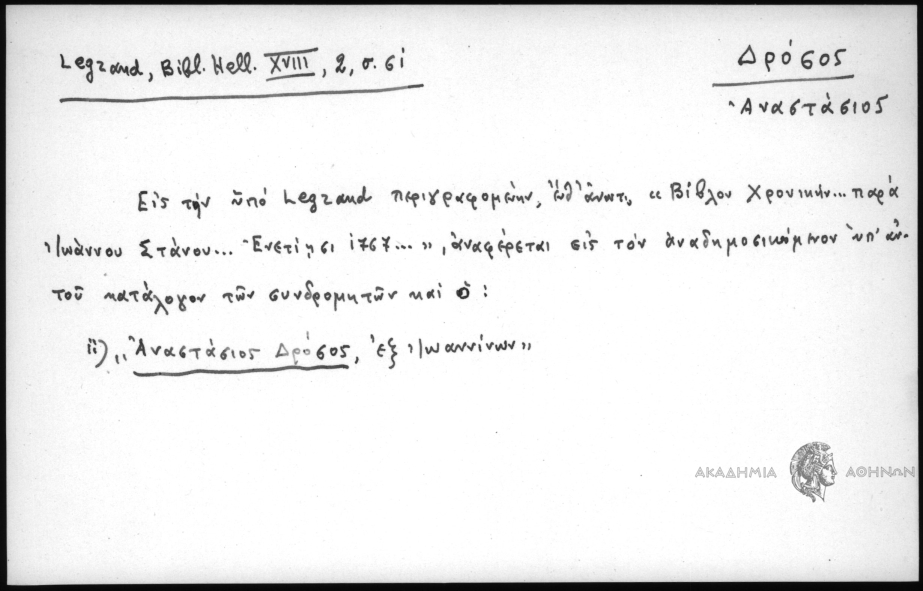 Legrand, Bibl. Hell. XVIII, 2, σ. 61
Δρόσος
Ἀναστάσιος
Εἰς τὴν ὑπὸ Legrand περιγραφομένην, ἔνθ' ἀνωτ., « Βίβλον Χρονικήν... παρὰ
Ἰωάννου Στάνου... Ἐνετίησι 1767... », ἀναφέρεται εἰς τὸν ἀναδημοσιευόμενον ὑπ' αὐ-
τοῦ κατάλογον τῶν συνδρομητῶν καὶ ὁ:
ii) „Ἀναστάσιος Δρόσος, ἐξ Ἰωαννίνων"
ΑΚΑΔΗΜΙΑ ΑΘΗΝΩΝ